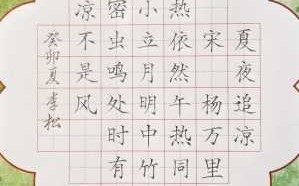 夏夜追凉
宋 杨万里
热依然午热同
小立月明中竹
密虫鸣处时有
凉不是风
癸卯夏 李松